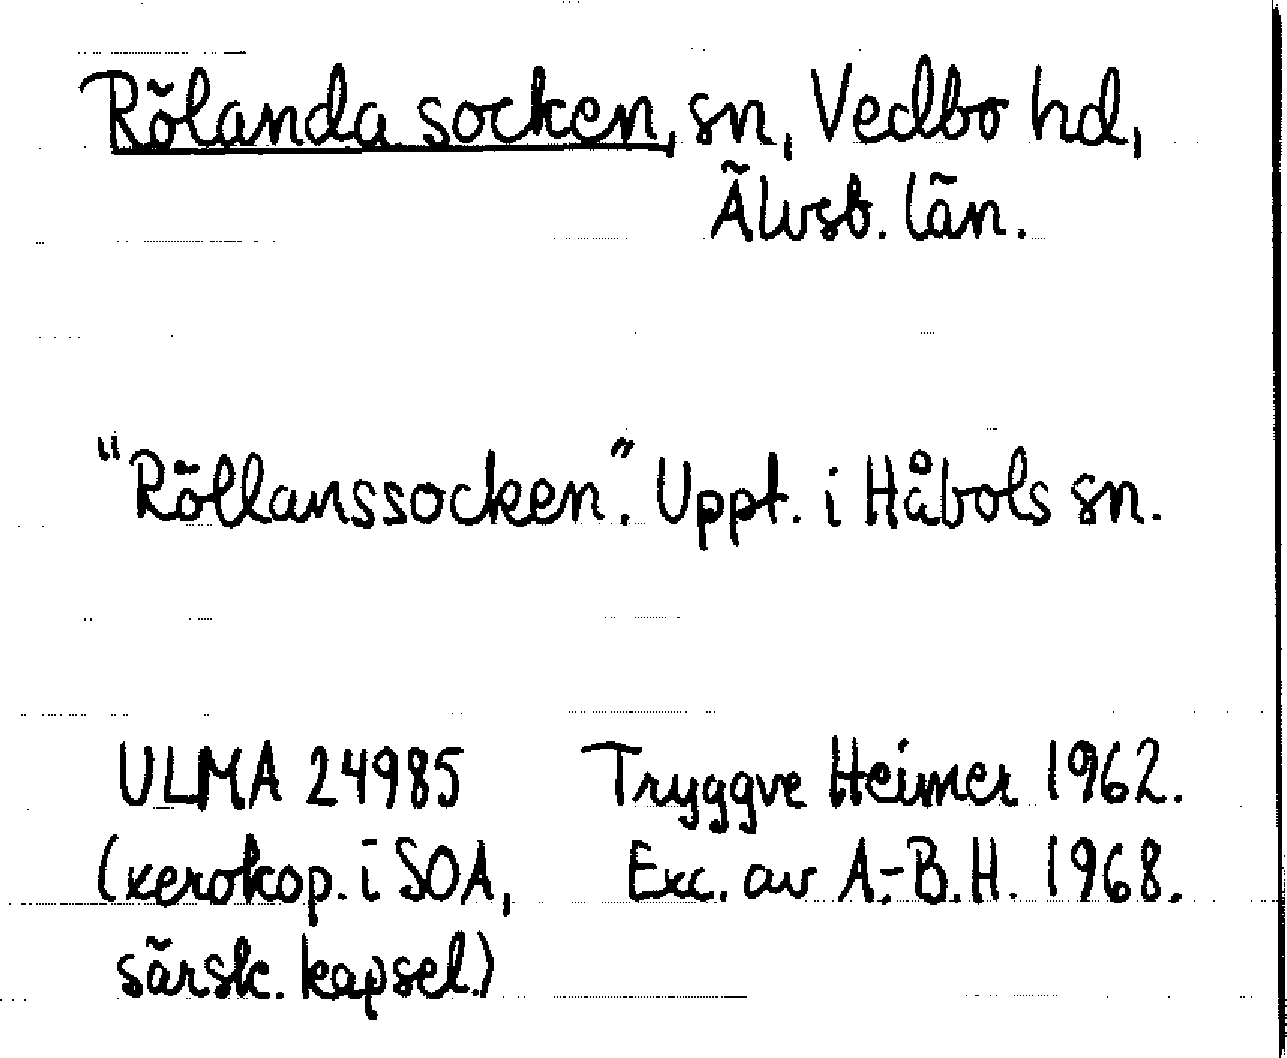 Rölanda socken, sn, Vedbo hd,
Älvsb. län.
"Röllanssocken". Uppt. i Håbols sn.
ULMA 24985 Tryggve Heimer 1962.
(xerokop. i SOA, Exc. av A.-B.H. 1968.
särsk. kapsel.)